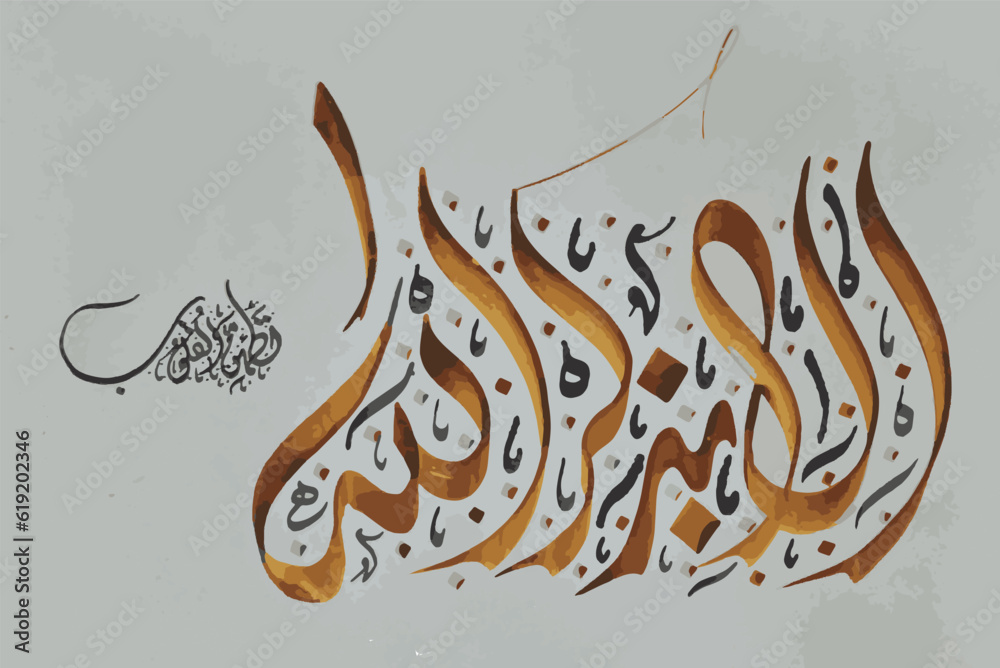 ألا بذكر الله
تطمئن القلوب
Adobe Stock | #619202346